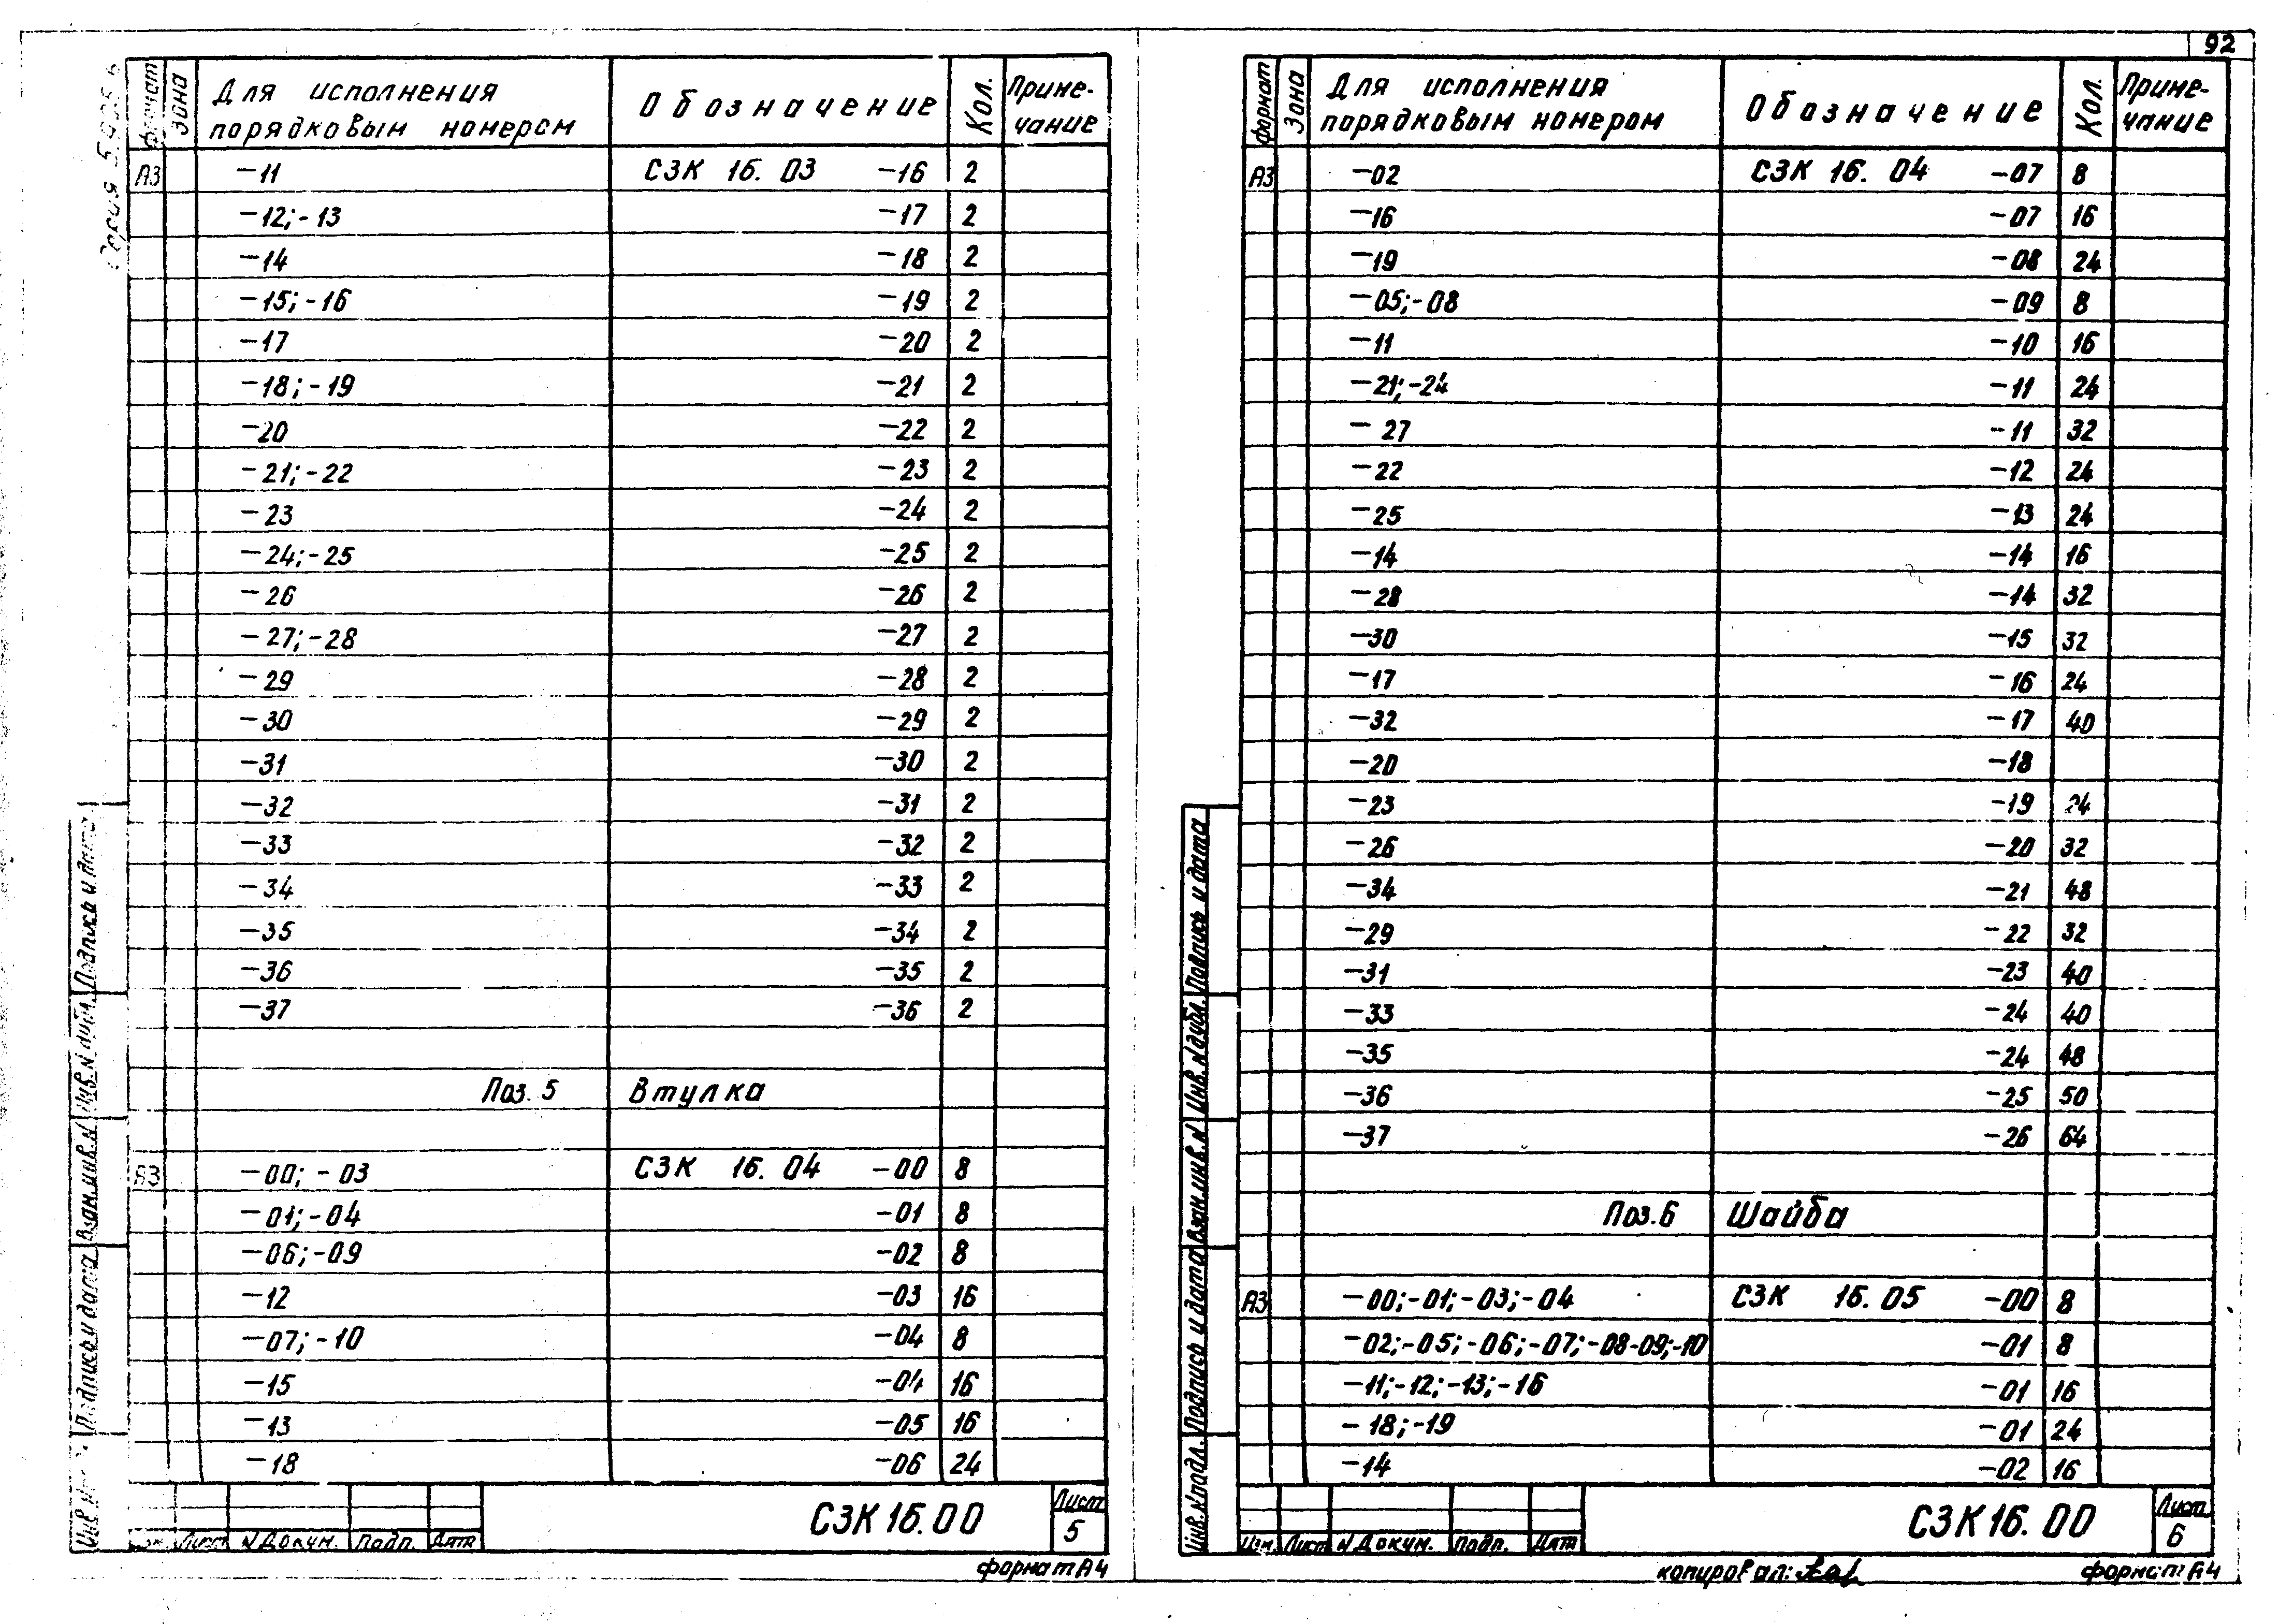 92
формат Зона Для исполнения порядковым номером Обозначение Кол. Примечание
А3 -11 СЗК 16.03 -16 2
-12;-13 -17 2
-14 -18 2
-15;-16 -19 2
-17 -20 2
-18;-19 -21 2
-20 -22 2
-21;-22 -23 2
-23 -24 2
-24;-25 -25 2
-26 -26 2
-27;-28 -27 2
-29 -28 2
-30 -29 2
-31 -30 2
-32 -31 2
-33 -32 2
-34 -33 2
-35 -34 2
-36 -35 2
-37 -36 2
Поз. 5 Втулка
А3 -00; -03 СЗК 16.04 -00 8
-01;-04 -01 8
-06;-09 -02 8
-12 -03 16
-07;-10 -04 8
-15 -04 16
-13 -05 16
-18 -06 24
Подпись и дата
Взам.инв.N
Подпись и дата
Изм. Лист N Докум. Подп. Дата
СЗК16.00
Лист
5
формат А4
формат Зона Для исполнения порядковым номером Обозначение Кол. Примечание
А3 -02 СЗК 16.04 -07 8
-16 -07 16
-19 -08 24
-05;-08 -09 8
-11 -10 16
-21;-24 -11 24
-27 -11 32
-22 -12 24
-25 -13 24
-14 -14 16
-28 -14 32
-30 -15 32
-17 -16 24
-32 -17 40
-20 -18
-23 -19 24
-26 -20 32
-34 -21 48
-29 -22 32
-31 -23 40
-33 -24 40
-35 -24 48
-36 -25 50
-37 -26 64
Поз.6 Шайба
А3 -00;-01;-03;-04 СЗК 16.05 -00 8
-02;-05;-06;-07;-08-09;-10 -01 8
-11;-12;-13;-16 -01 16
-18;-19 -01 24
-14 -02 16
Подпись и дата
Инв.N дубл.
Взам.инв.N
Подпись и дата
Инв.N подл.
Изм. Лист N Докум. Подп. Дата
СЗК16.00
Лист
6
копировал:
формат А4